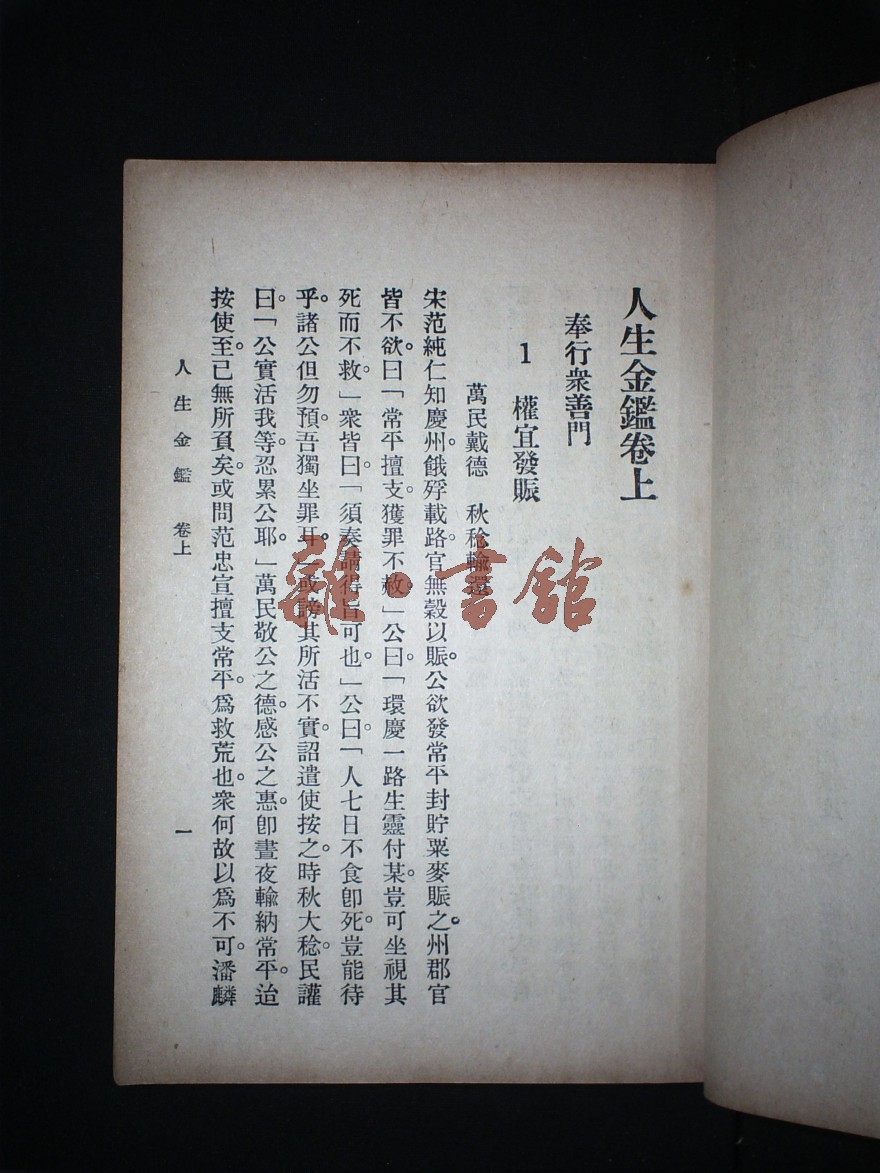 人生金鑑卷上
奉行衆善門
1 權宜發賑
萬民戴德 秋稔輸還
宋范純仁知慶州。餓殍載路。官無穀以賑。公欲發常平封貯粟麥賑之。州郡官
皆不欲。曰「常平擅支。獲罪不赦。」公曰。「環慶一路生靈付某。豈可坐視其
死而不救。」衆皆曰。「須奏請得旨可也。」公曰。「人七日不食卽死。豈能待
乎。諸公但勿預。吾獨坐罪耳。」或謗其所活不實。詔遣使按之。時秋大稔。民讙
曰。「公實活我等。忍累公耶。」萬民敬公之德。感公之惠。卽晝夜輸納常平。迨
按使至。已無所負矣。或問范忠宣擅支常平。爲救荒也。衆何故以爲不可。潘麟
人生金鑑 卷上 一
雜·書館